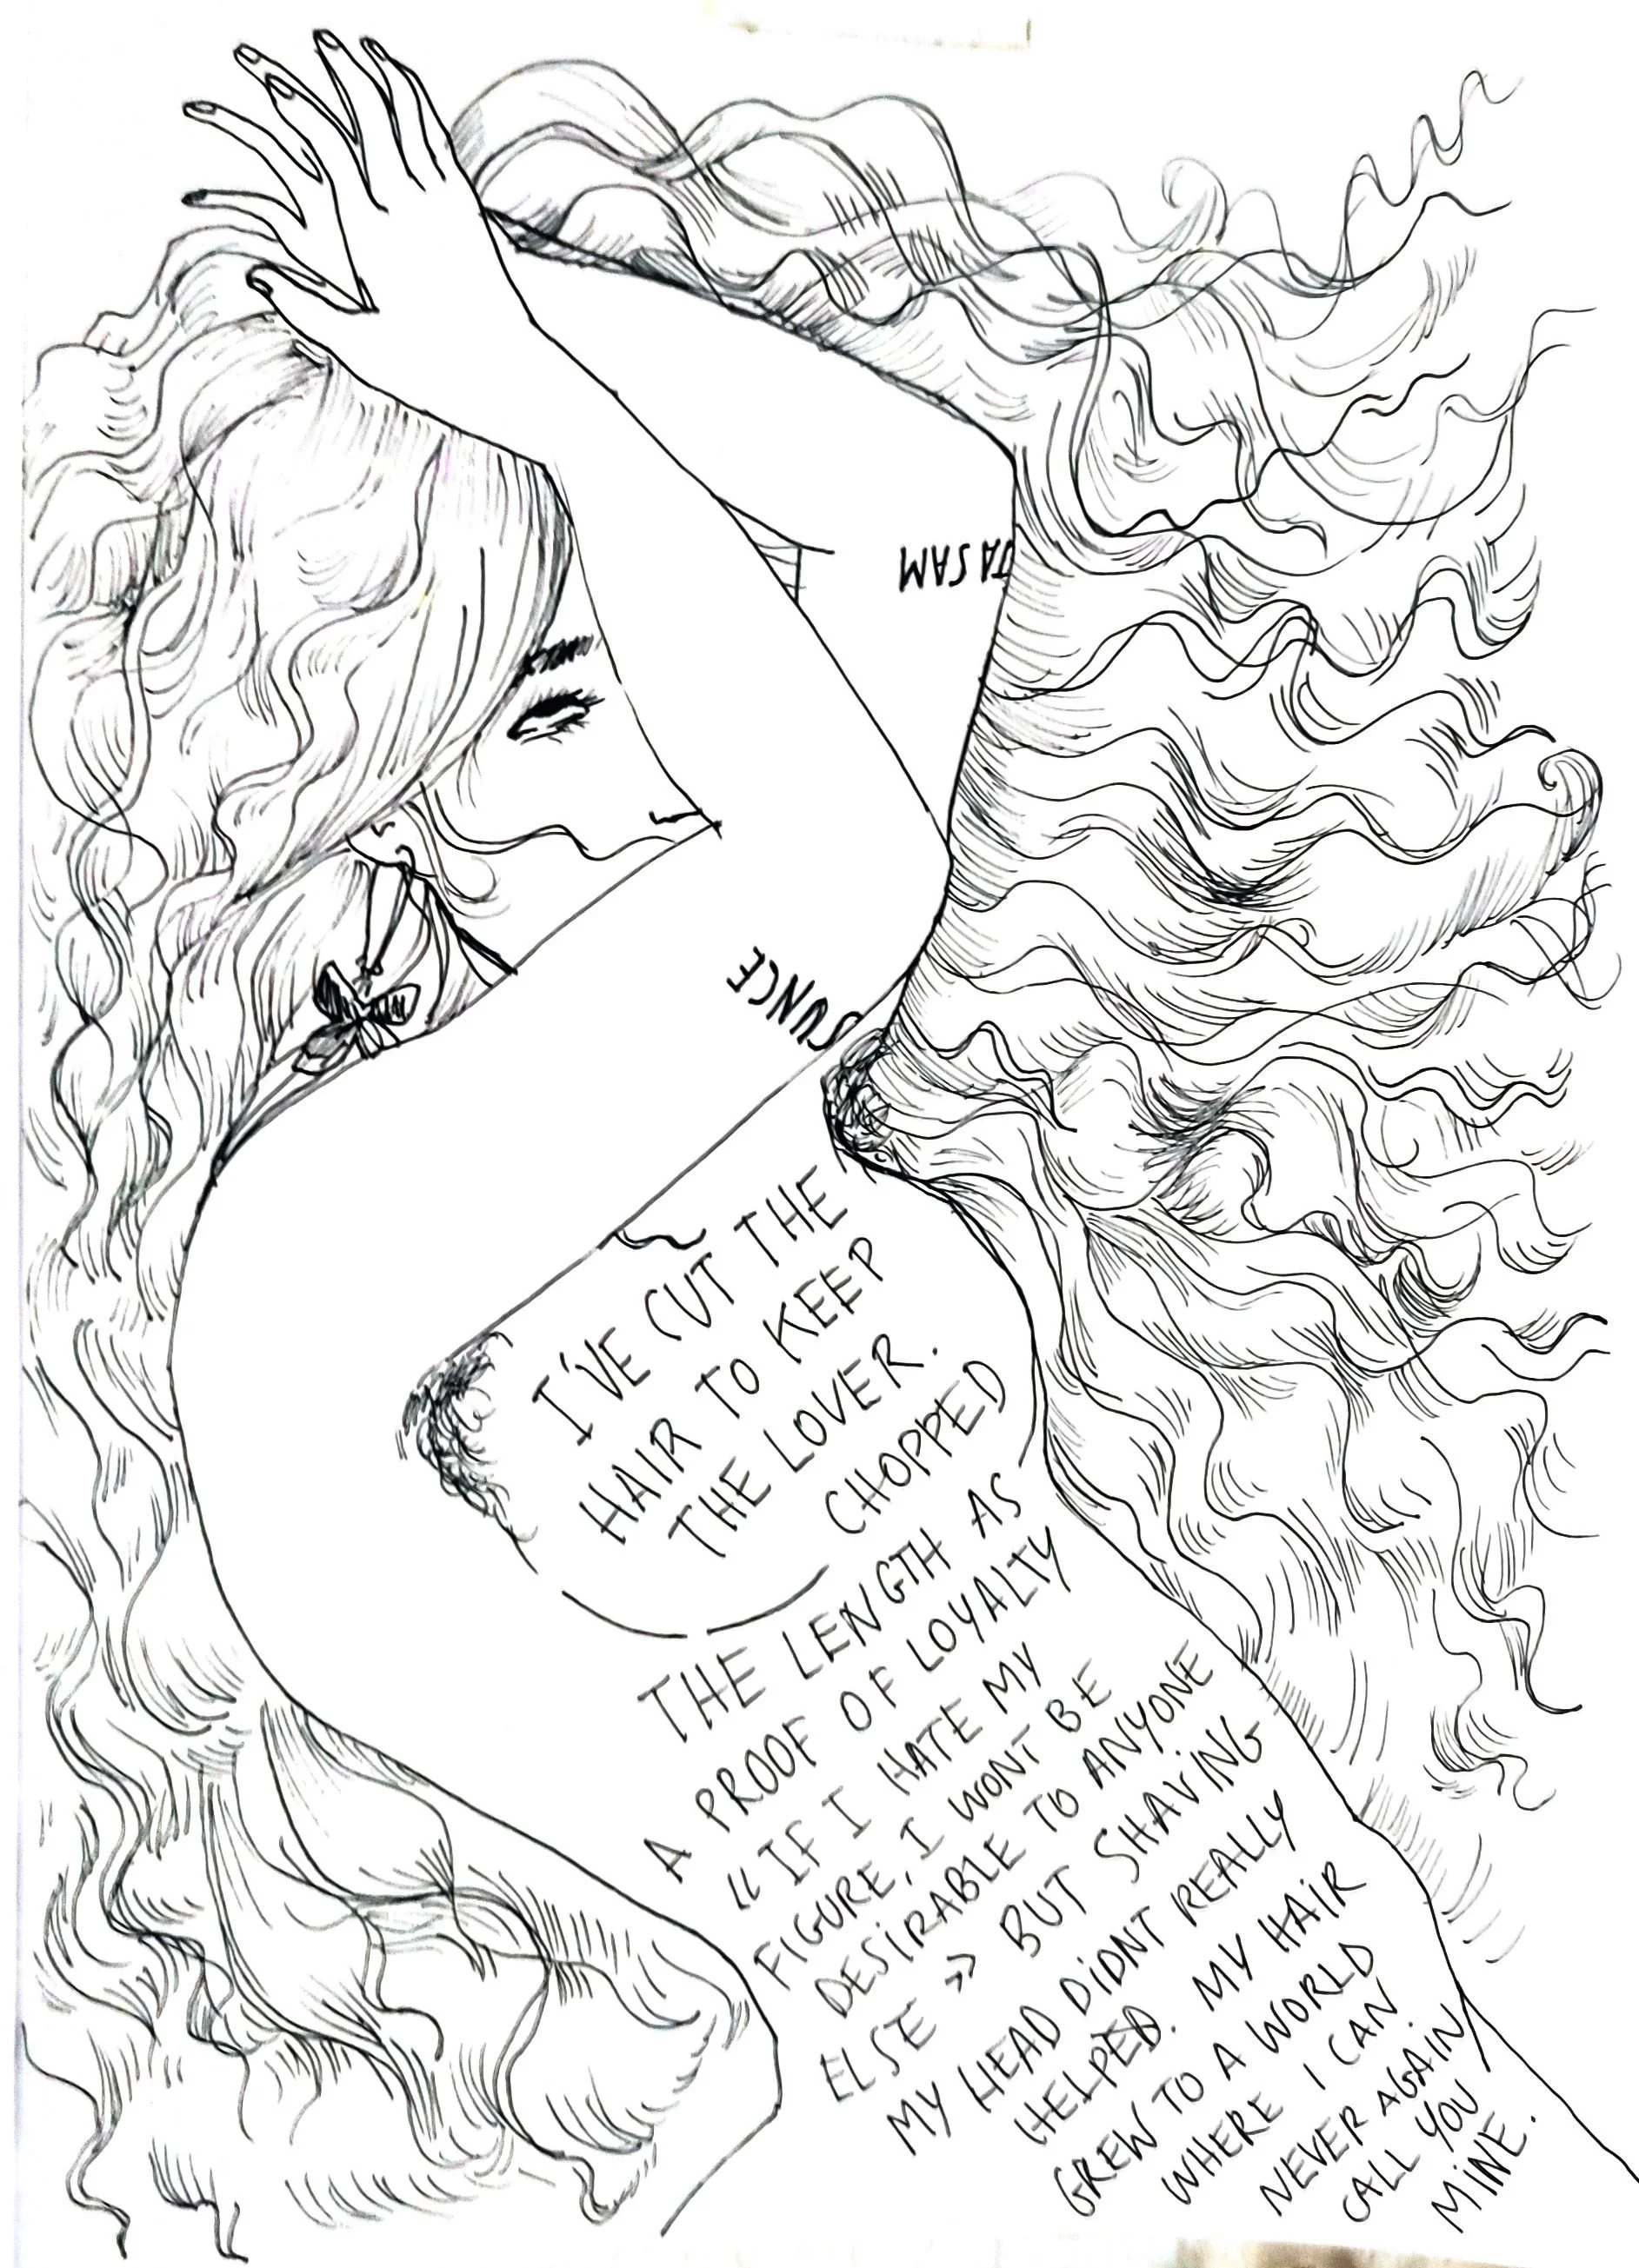 JA SAM
SUNCE
I'VE CUT THE
HAIR TO KEEP
THE LOVER.
CHOPPED
THE LENGTH AS
A PROOF OF LOYALTY
<< IF I HATE MY
FIGURE, I WONT BE
DESIRABLE TO ANYONE
ELSE >> BUT SHAVING
MY HEAD DIDNT REALLY
HELPED. MY HAIR
GREW TO A WORLD
WHERE I CAN
NEVER AGAIN
CALL YOU
MINE.